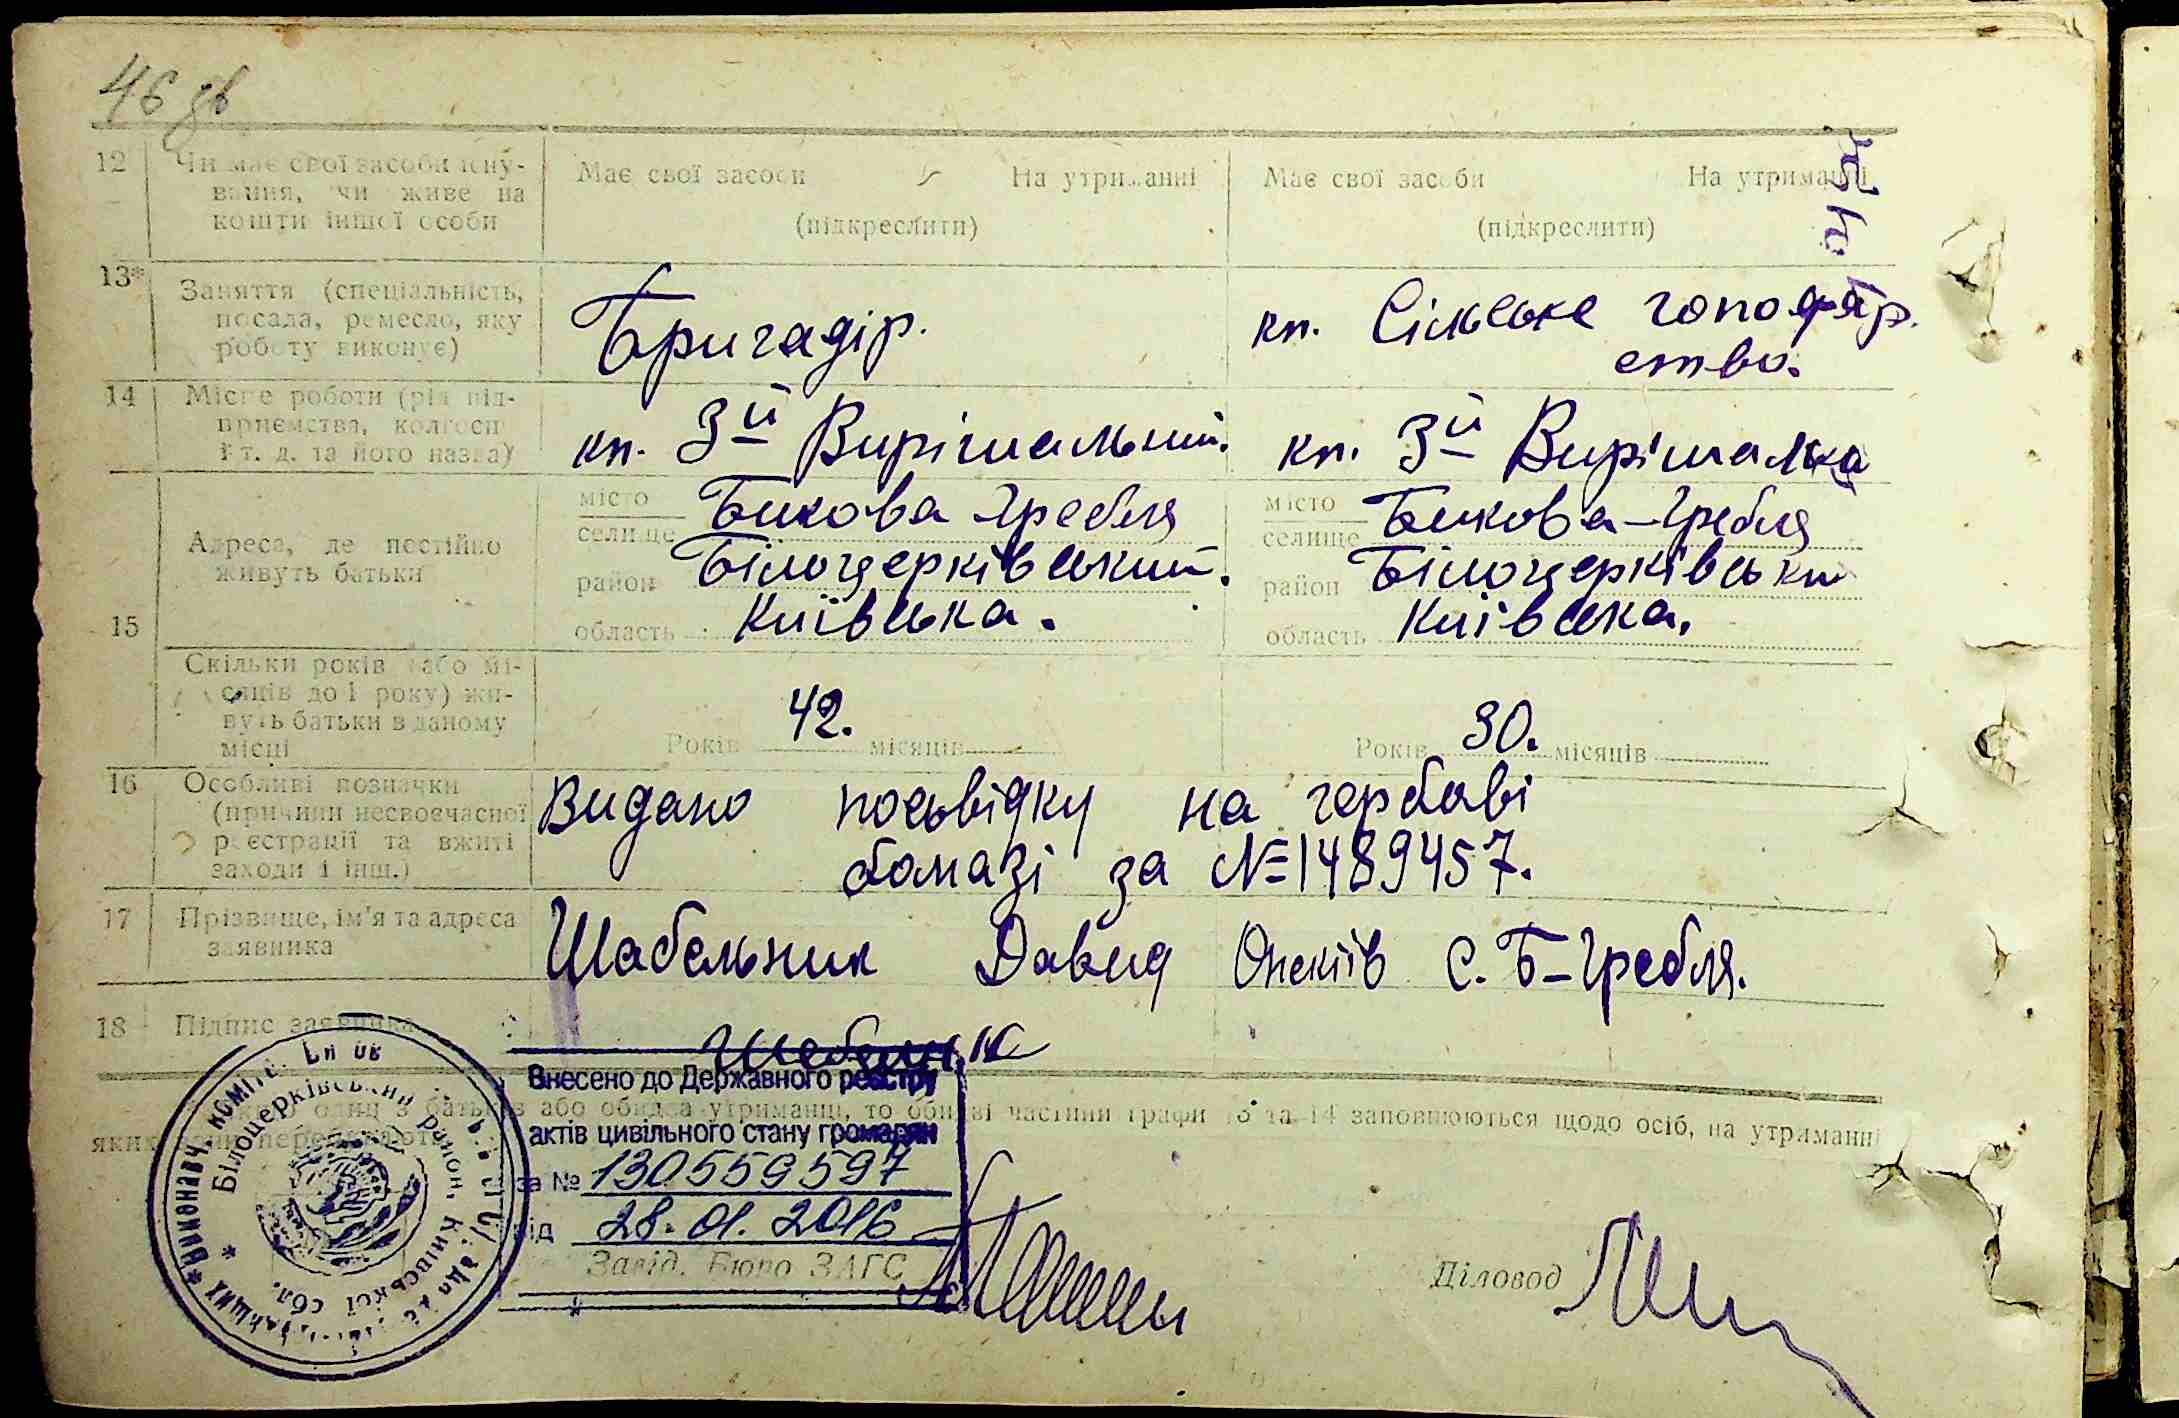 46 зв
12 Чи має свої засоби існу-
вання, чи живе на
кошти іншої особи
Має свої засоби На утриманні
(підкреслити)
Має свої засоби На утриманні
(підкреслити)
13* Заняття (спеціальність,
посада, ремесло, яку
роботу виконує)
Бригадір.
кп. Сільське
ство.
14 Місце роботи (рід під-
приємства, колгосп
і т. д. та його назва)
кп. 3й Вирішальний.
кп. 3й
15 Адреса, де постійно
живуть батьки
місто
селище Бикова Гребля
район Білоцерківський.
область Київська.
місто
селище Бикова-Гребля
район Білоцерківський
область Київська.
Скільки років (або мі-
сяців до 1 року) жи-
вуть батьки в даному
місці
Років 42. місяців
Років 30. місяців
16 Особливі позначки
(причини несвоєчасної
реєстрації та вжиті
заходи і інш.)
Видано посьвідку на гербові
бомазі за №1489457.
17 Прізвище, ім'я та адреса
заявника
Шабельник Давид с. Б-Гребля.
18 Підпис заявника
Внесено до Державного реєстру
актів цивільного стану громадян
за № 130559597
від 28.01.2016
один з батьків або обидва утриманці, то обидві частини графи 13 та 14 заповнюються щодо осіб, на утриманні
яких вони перебувають
Завід. Бюро ЗАГС
Діловод
Білоцерківський район, Київської обл.